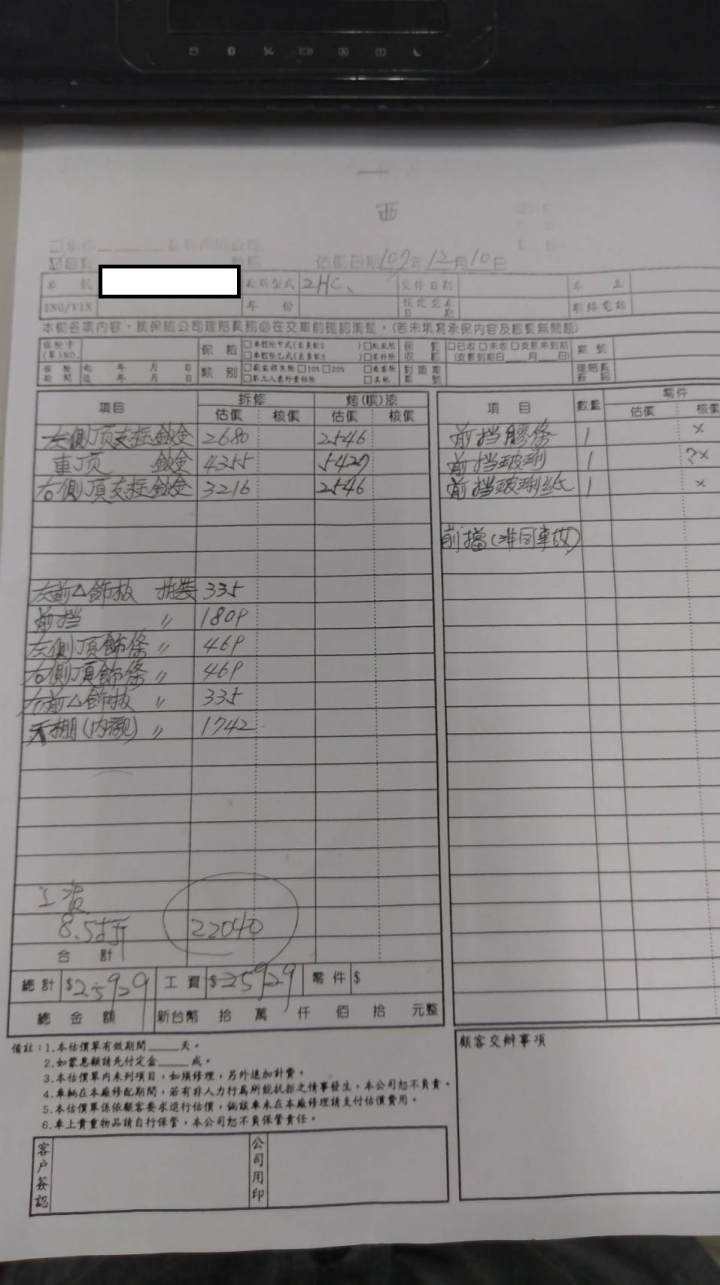 西
估價日期107年12月10日
車 號 車別型式 2HC 交修日期 車 主
ENG/VIN 年 份 預定交車日期 聯絡電話
本輛各項內容,該保險公司理賠員務必在交車前確認清楚。(若未填寫承保內容及數量無問題)
保險卡(單)NO. 保險類別 保單收據 案號
保險期間 起 年 月 日 迄 年 月 日
項目 拆修 估價 核價 烤(噴)漆 估價 核價
左側頂支柱鈑金 2680 2546
車頂 鈑金 4355 5427
右側頂支柱鈑金 3216 2546
左前△飾板 拆裝 335
前挡 〃 1809
左側頂飾條 〃 469
右側頂飾條 〃 469
右前△飾板 〃 335
天棚(內襯) 〃 1742
工資
8.5折 22040
合 計
總計 $25929 工資 $25929 零件 $
總 金 額 新台幣 拾 萬 仟 佰 拾 元整
項 目 數量 零件 估價 核價
前挡膠條 1 x
前挡玻璃 1 ?x
前挡玻璃紙 1 x
前擋(非同事故)
備註:1.本估價單有效期間____天。
2.如蒙惠顧請先付定金____成。
3.本估價單內未列項目,如須修理,另外追加計費。
4.車輛在本廠修配期間,若有非人力行為所能抗拒之情事發生,本公司恕不負責。
5.本估價單係依顧客要求進行估價,倘該車未在本廠修理請支付估價費用。
6.車上貴重物品請自行保管,本公司恕不負保管責任。
顧客交辦事項
客戶簽認
公司用印